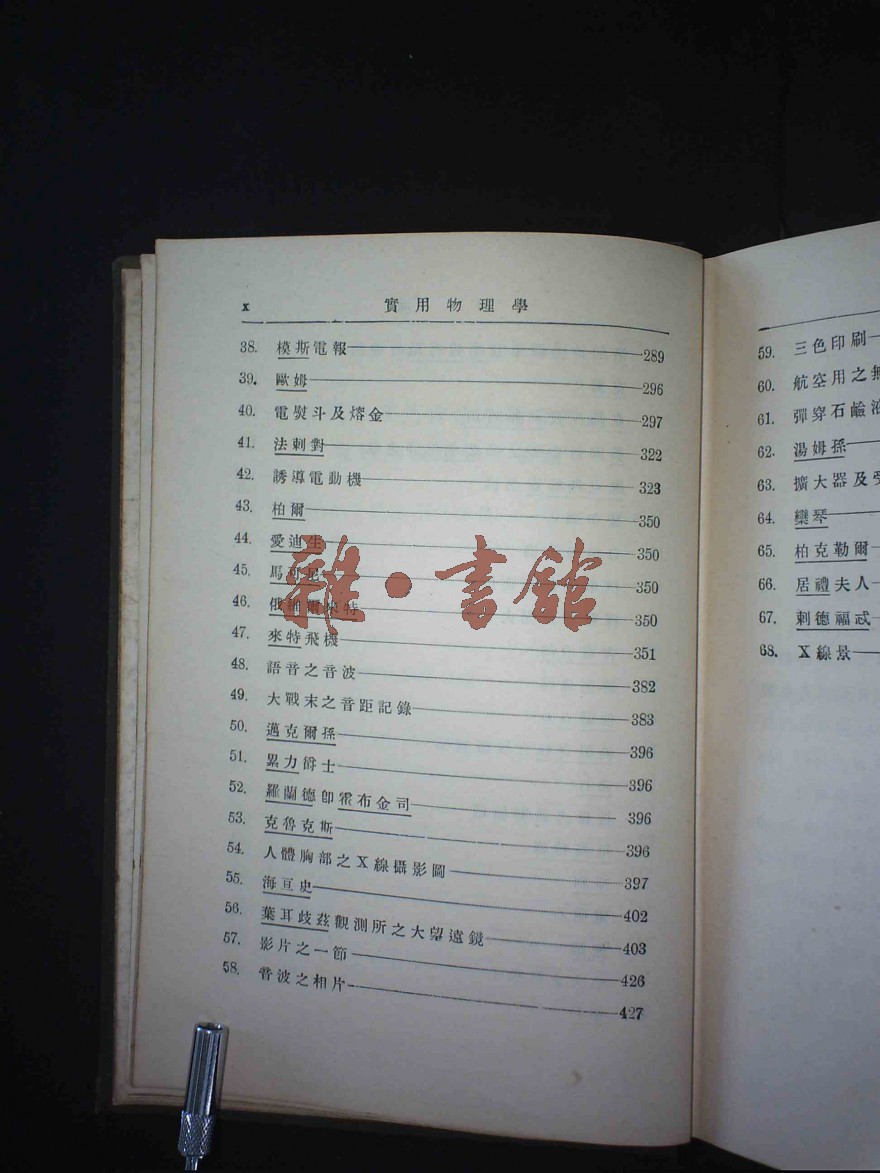 x 實用物理學
38. 模斯電報 289
39. 歐姆 296
40. 電熨斗及熔金 297
41. 法剌對 322
42. 誘導電動機 323
43. 柏爾 350
44. 愛迪生 350
45. 馬可尼 350
46. 俄維爾來特 350
47. 來特飛機 351
48. 語音之音波 382
49. 大戰末之音距記錄 383
50. 邁克爾孫 396
51. 累力爵士 396
52. 羅蘭德卽霍布金司 396
53. 克魯克斯 396
54. 人體胸部之X線攝影圖 397
55. 海亘史 402
56. 葉耳歧茲觀測所之大望遠鏡 403
57. 影片之一節 426
58. 音波之相片 427
雜·書館
59. 三色印刷
60. 航空用之無
61. 彈穿石鹼液
62. 湯姆孫
63. 擴大器及受
64. 欒琴
65. 柏克勒爾
66. 居禮夫人
67. 剌德福武
68. X線景